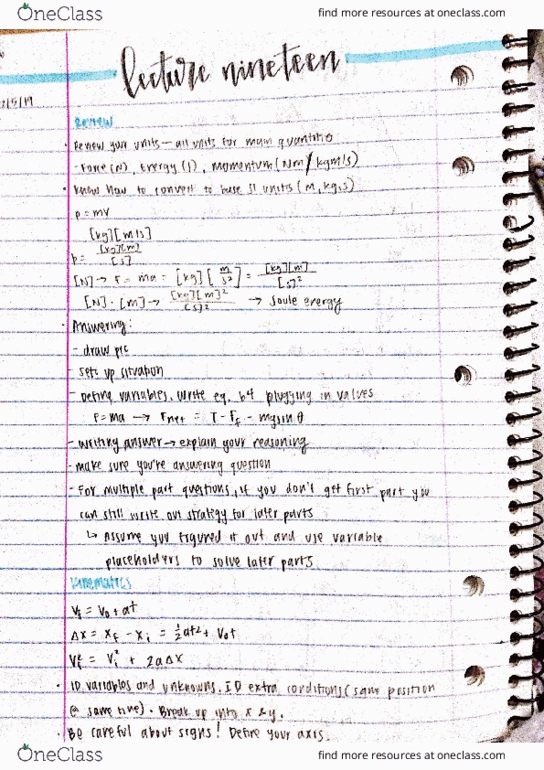 OneClass
find more resources at oneclass.com
lecture nineteen
Review
· Review your units — all units for main quantities
- Force (N), Energy (J), momentum (Nm/kgm/s)
· Know how to convert to base SI units (m, kg, s)
p = mv
[kg][m/s]
p = [kg][m]/[s]
[N] → F = ma = [kg][m/s²] = [kg][m]/[s]²
[N]·[m] → [kg][m]²/[s]² → Joule energy
· Answering:
- draw pic
- sets up situation
- Define variables, write eq. b4 plugging in values
F = ma → Fnet = T - Ff - mg sin θ
- writing answer → explain your reasoning
- make sure you're answering question
- For multiple part questions, if you don't get first part you
can still write out strategy for later parts
↳ Assume you figured it out and use variable
placeholders to solve later parts
Kinematics
Vf = V0 + at
Δx = xf - xi = ½at² + V0t
Vf² = Vi² + 2aΔx
· ID variables and unknowns. ID extra conditions (same position
@ same time). Break up into x & y.
· Be careful about signs! Define your axis.
OneClass
find more resources at oneclass.com